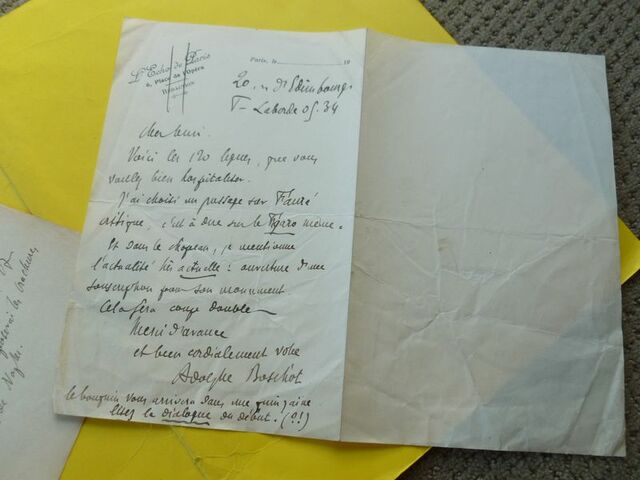 L'Echo de Paris
6, Place de l'Opéra
Paris, le 19
20, r. d'Edimbourg
T- Laborde 05.34
cher ami.
Voici les 120 lignes, que vous
voulez bien hospitaliser.
J'ai choisi un passage sur Fauré
critique, c'est à dire sur le Figaro même.
Et dans le chapeau, je mentionne
l'actualité très actuelle : ouverture d'une
souscription pour son monument.
Cela fera coup double
Merci d'avance
et bien cordialement votre
Adolphe Boschot
le bouquin vous arrivera dans une quinzaine
Lisez le dialogue du début. (?!)